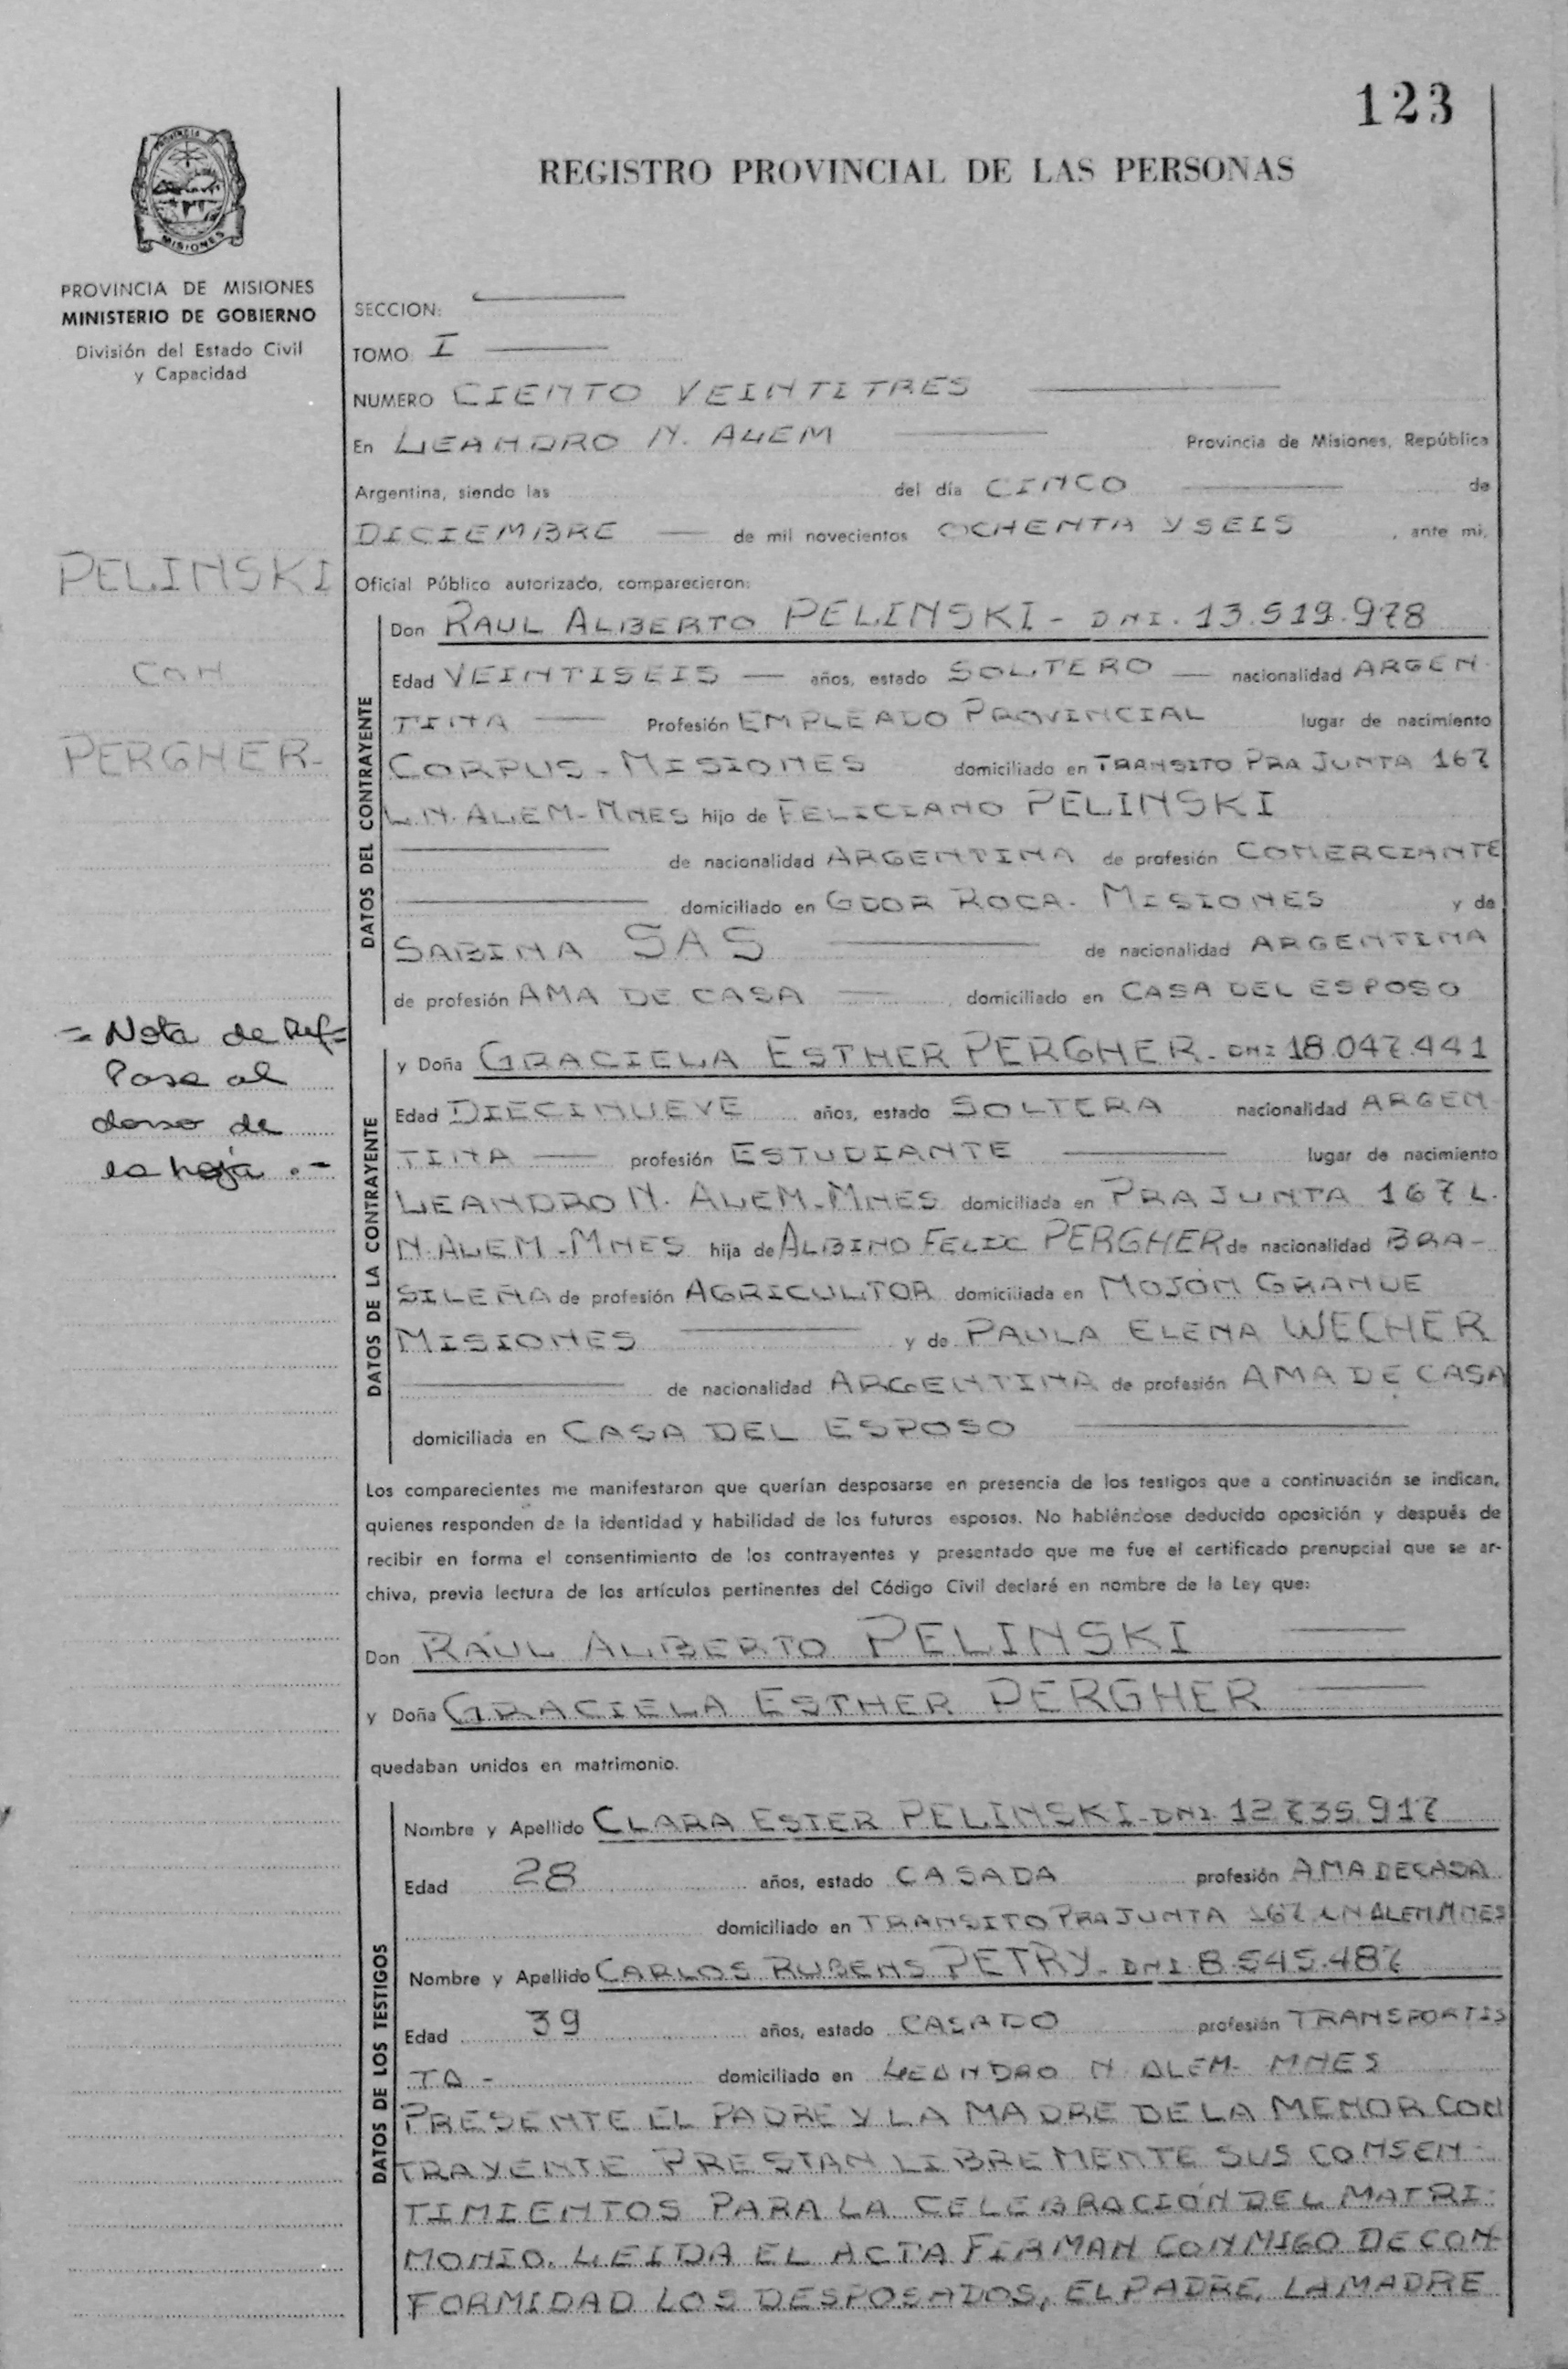 123
REGISTRO PROVINCIAL DE LAS PERSONAS
MISIONES
PROVINCIA DE MISIONES
MINISTERIO DE GOBIERNO
División del Estado Civil
y Capacidad
PELINSKI
CON
PERGHER-
= Nota de Ref=
Pase al
dorso de
la hoja .-
SECCION:
TOMO I
NUMERO CIENTO VEINTITRES
En LEANDRO N. ALEM Provincia de Misiones, República
Argentina, siendo las del día CINCO de
DICIEMBRE de mil novecientos OCHENTA Y SEIS , ante mi,
Oficial Público autorizado, comparecieron:
DATOS DEL CONTRAYENTE
Don RAUL ALBERTO PELINSKI - DNI. 13.519.978
Edad VEINTISEIS años, estado SOLTERO nacionalidad ARGEN-
TINA Profesión EMPLEADO PROVINCIAL lugar de nacimiento
CORPUS - MISIONES domiciliado en TRANSITO PRA JUNTA 167
L.N. ALEM - MNES hijo de FELICIANO PELINSKI
de nacionalidad ARGENTINA de profesión COMERCIANTE
domiciliado en GDOR ROCA - MISIONES y de
SABINA SAS de nacionalidad ARGENTINA
de profesión AMA DE CASA domiciliado en CASA DEL ESPOSO
DATOS DE LA CONTRAYENTE
y Doña GRACIELA ESTHER PERGHER - DNI 18.047.441
Edad DIECINUEVE años, estado SOLTERA nacionalidad ARGEN
TINA profesión ESTUDIANTE lugar de nacimiento
LEANDRO N. ALEM - MNES domiciliada en PRA JUNTA 167 L.
N. ALEM - MNES hija de ALBINO FELIX PERGHER de nacionalidad BRA-
SILEÑA de profesión AGRICULTOR domiciliada en MOJON GRANDE
MISIONES y de PAULA ELENA WECHER
de nacionalidad ARGENTINA de profesión AMA DE CASA
domiciliada en CASA DEL ESPOSO
Los comparecientes me manifestaron que querían desposarse en presencia de los testigos que a continuación se indican,
quienes responden de la identidad y habilidad de los futuros esposos. No habiéndose deducido oposición y después de
recibir en forma el consentimiento de los contrayentes y presentado que me fue el certificado prenupcial que se ar-
chiva, previa lectura de los artículos pertinentes del Código Civil declaré en nombre de la Ley que:
Don RAUL ALBERTO PELINSKI
y Doña GRACIELA ESTHER PERGHER
quedaban unidos en matrimonio.
DATOS DE LOS TESTIGOS
Nombre y Apellido CLARA ESTER PELINSKI - DNI. 12.735.917
Edad 28 años, estado CASADA profesión AMA DE CASA
domiciliado en TRANSITO PRA JUNTA 167 LN ALEM MNES
Nombre y Apellido CARLOS RUBENS PETRY - DNI 8.545.487
Edad 39 años, estado CASADO profesión TRANSPORTIS
TA - domiciliado en LEANDRO N ALEM - MNES
PRESENTE EL PADRE Y LA MADRE DE LA MENOR CON
TRAYENTE PRESTAN LIBREMENTE SUS CONSEN-
TIMIENTOS PARA LA CELEBRACIÓN DEL MATRI-
MONIO. LEIDA EL ACTA FIRMAN CONMIGO DE CON-
FORMIDAD LOS DESPOSADOS, EL PADRE, LA MADRE